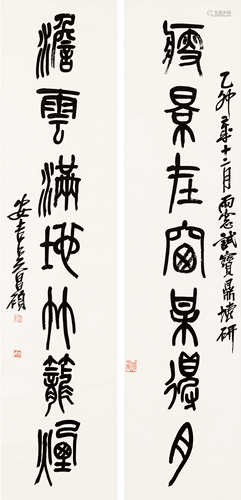 乙卯歲十二月雨窓試寶鼎塼研
瘦景在窗某得月
澹雲滿地竹籠煙
安吉吳昌碩